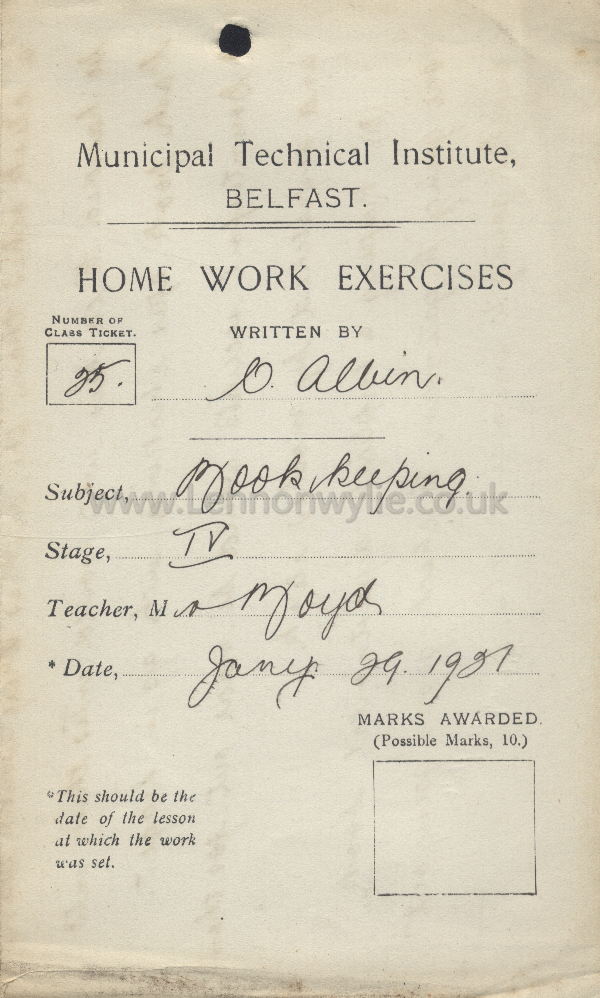 Municipal Technical Institute,
BELFAST.
HOME WORK EXERCISES
NUMBER OF
CLASS TICKET.
WRITTEN BY
25.
O. Albin.
Subject, Bookkeeping.
www.Lennonwylie.co.uk
Stage, IV
Teacher, Mr Boyd
* Date, Jany. 29. 1921
MARKS AWARDED.
(Possible Marks, 10.)
*This should be the
date of the lesson
at which the work
was set.